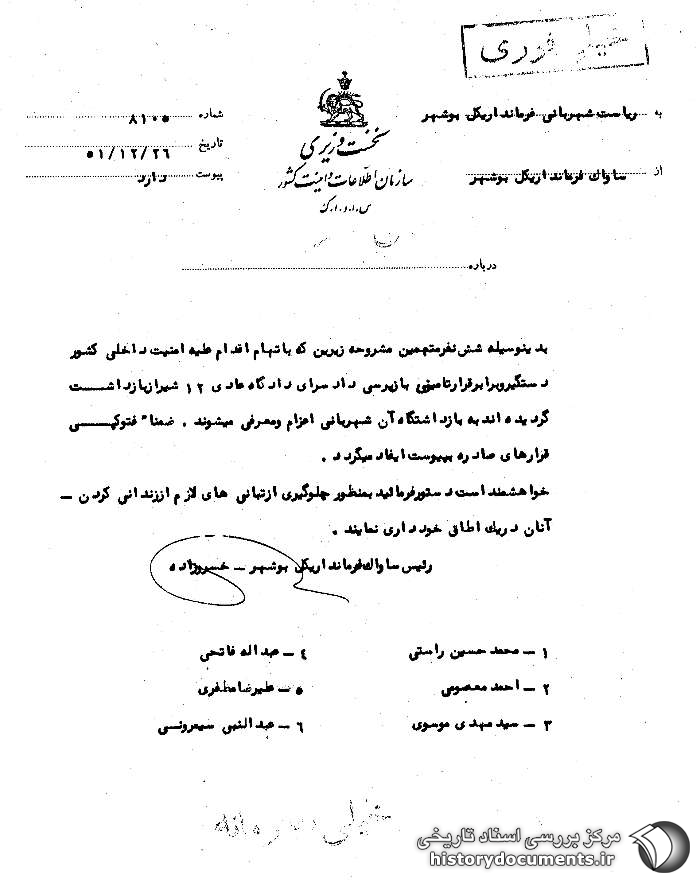 خیلی فوری
به ریاست شهربانی فرمانداریکل بوشهر
از ساواک فرمانداریکل بوشهر
نخست وزیری
سازمان اطلاعات و امنیت کشور
س.ا.و.ا.ک
شماره ۸۱۰۵
تاریخ ۵۱/۱۲/۲۶
پیوست دارد
درباره
بدینوسیله شش نفر متهمین مشروحه زیرین که باتهام اقدام علیه امنیت داخلی کشور
دستگیر و برابر قرار تامینی بازپرسی دادسرای دادگاه عادی ۱۲ شیراز بازداشت
گردیده اند به بازداشتگاه آن شهربانی اعزام و معرفی میشوند . ضمناً فتوکپی
قرارهای صادره بپیوست ایفاد میگردد .
خواهشمند است دستور فرمائید بمنظور جلوگیری از تبانی های لازم از زندانی کردن –
آنان در یک اطاق خودداری نمایند .
رئیس ساواک فرمانداریکل بوشهر – خسروزاده
۱ – محمد حسین راستی
۲ – احمد معصومی
۳ – سید مهدی موسوی
۴ – عبداله فاتحی
۵ – علیرضا مظفری
۶ – عبدالنبی سیعرونسی
خیلی محرمانه
مرکز بررسی اسناد تاریخی
historydocuments.ir